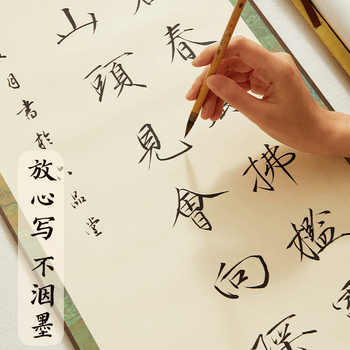 春拂檻
山頭見會向
月書於品堂
放心写 不洇墨